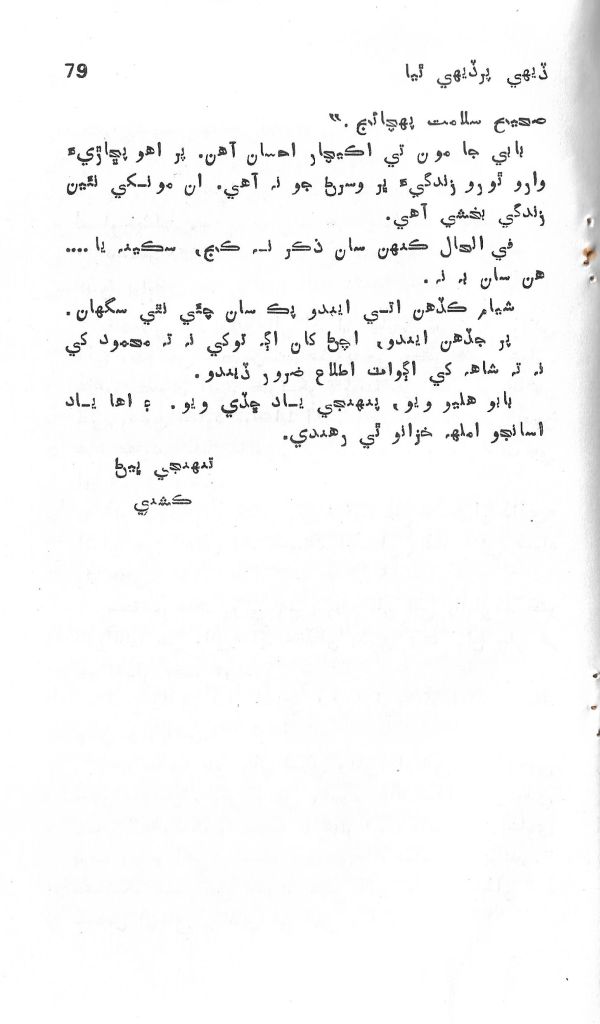 ڏيهي پرڏيهي ٿيا 79
صحيح سلامت پهچائج."
بابي جا مون تي اڪيچار احسان آهن. پر اهو پڇاڙيءَ
وارو ٿورو زندگيءَ ڀر وسرڻ جو نه آهي. ان مونکي نئين
زندگي بخشي آهي.
في الحال ڪنهن سان ذڪر نه ڪج، سڪينه يا ....
هن سان به نه.
شيام ڪڏهن ايندو پڪ سان چئي نٿي سگهان.
پر جڏهن ايندو، اچڻ کان اڳ توکي نه ته محمود کي
نه ته شاهه کي اڳواٽ اطلاع ضرور ڏيندو.
بابو هليو ويو، پنهنجي ياد ڇڏي ويو. ۽ اها ياد
اسانجو املهه خزانو ٿي رهندي.
تنهنجي ڀيڻ
ڪشني